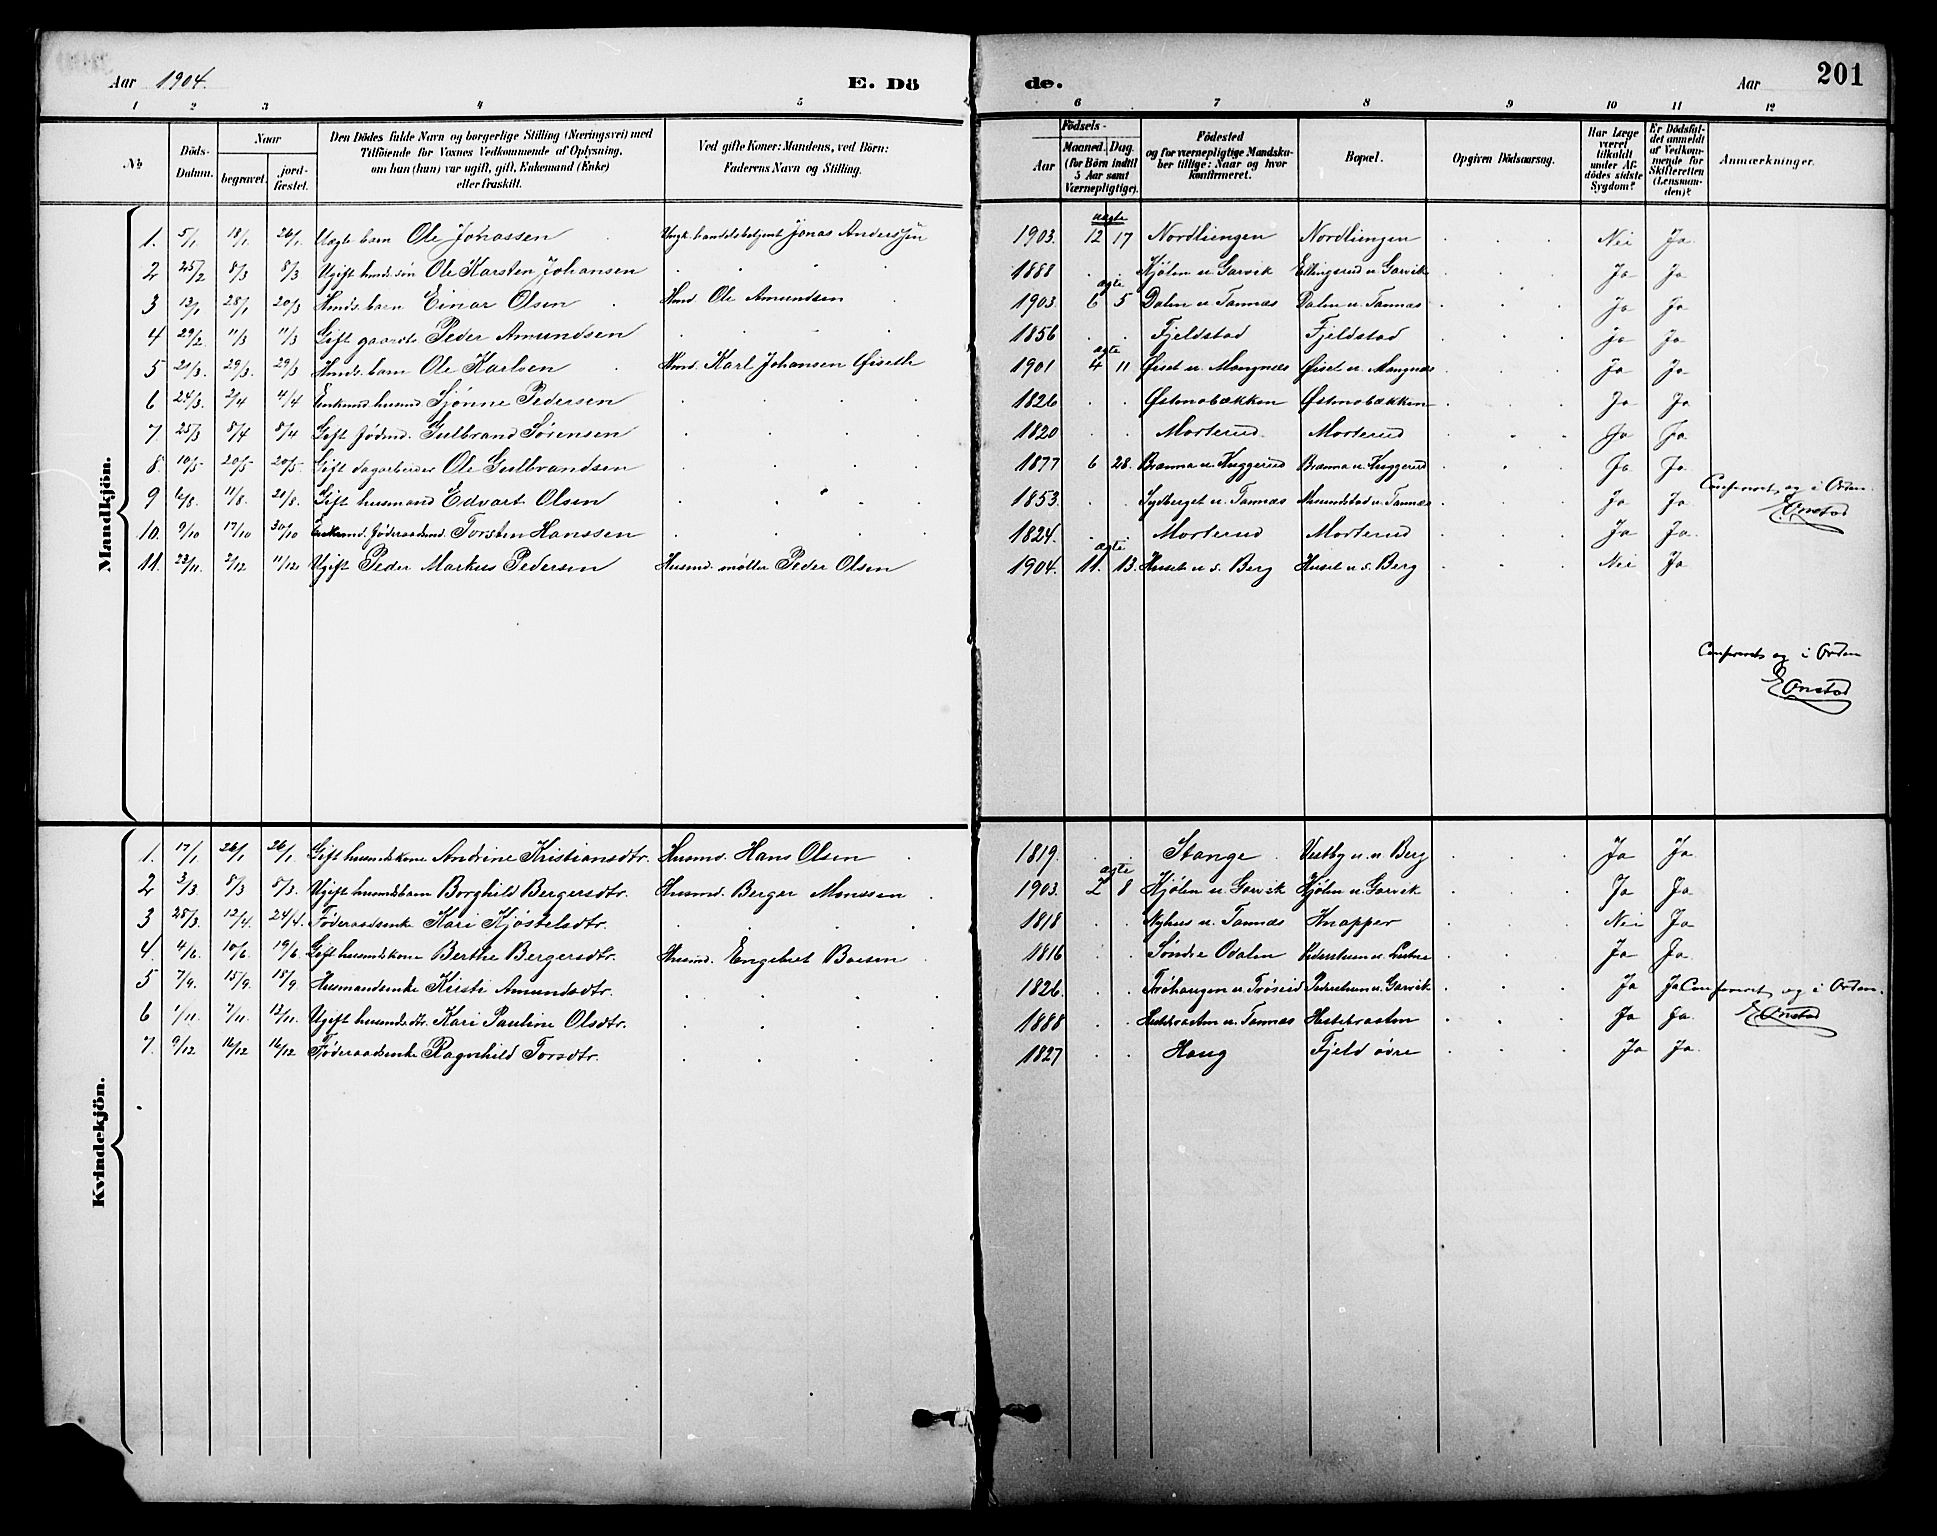 Aar 1904. E. Dö de. Aar 201
1 2 3 4 5 6 7 8 9 10 11 12
No Döds-Datum. Naar begravet. jord-fæstet. Den Dödes fulde Navn og borgerlige Stilling (Næringsvei) med Tilföiende for Voxnes Vedkommende af Oplysning, om han (hun) var ugift, gift, Enkemand (Enke) eller fraskilt. Ved gifte Koner: Mandens, ved Börn: Faderens Navn og Stilling. Födsels- Aar Maaned. Dag. (for Börn indtil 5 Aar samt Værnepligtige). Födested og for værnepligtige Mandska-ber tillige: Naar og hvor konfirmeret. Bopæl. Opgiven Dödsaarsag. Har Læge været tilkaldt under Af-dödes sidste Sygdom? Er Dödsfal-det anmeldt af Vedkom-mende for Skifteretten (Lensman-den)? Anmærkninger.
Mandkjön.
uægte
1. 5/1 18/1 26/1 Uægte barn Ole Johassen Ungk. handelsbetjent Jonas Anderssen 1903. 12 17 Nordliengen Nordliengen Nei Ja
2 25/2 8/3 8/3 Ugift husm. søn Ole Karsten Johansen 1888 Kjølen u. Garvik Ellingsrud u. Garvik Ja Ja
ægte
3 13/1 28/1 20/3 Husds. barn Einar Olsen Husd. Ole Amundsen 1903 6 5 Dalen u. Tannæs Dalen u. Tannæs Ja Ja
4 29/2 11/3 11/3 Gift gaardb. Peder Amundsen 1856 Fjeldstad Fjeldstad Ja Ja
ægte
5 21/3. 29/3. 29/3 Husds. barn Ole Karlsen Husd. Karl Johansen Øiseth 1901 4 11 Øiset u. Mangnæs Øiset u. Mangnæs Ja Ja
6 24/3. 2/4 4/4 Enkemd husmd Sjønne Pedersen 1826 Østmobækken Østmobækken Ja Ja
7. 25/3 8/4 8/4 Gift fødmd. Gulbrand Sørensen 1820 Morterud Morterud Ja Ja
8. 10/5 20/5 20/5 Gift dagarbeider Ole Gulbrandsen 1877 6 28. Brænna u. Kuggerud Brænna u. Kuggerud Ja Ja
9 6/8. 11/8. 21/8. Gift husmand Edvart Olsen 1853 Sydberget u. Tannæs Amundstad u. Tannæs Ja Ja Confereret og i Orden.
EOnstad
10. 9/10 17/10 30/10 Enkemd. føderaadsmd. Torsten Hanssen 1824. Morterud Morterud Ja Ja.
ægte
11. 23/11. 2/12 11/12 Ugift Peder Markus Pedersen Husmd. møller Peder Olsen 1904. 11. 13. Huset u. s. Berg Huset u. s. Berg Nei Ja
Confereret og i Orden
EOnstad
Kvindekjön.
1. 17/1 26/1 26/1. Gift husmdskone Andrine Kristiansdtr. Husmd. Hans Olsen 1819. Stange Vestby u. n Berg Ja Ja
ægte
2 3/3 8/3 8/3. Ugift husmdsbarn Borghild Bergersdtr. Husmd. Berger Monssen 1903. 2 8 Kjølen u. Garvik Kjølen u. Garvik Ja Ja
3 28/3. 12/4. 24/4. Føderaadsenke Kari Kjøstelsdtr. 1818 Nyhus u. Tannæs Knapper Nei Ja
4. 4/6. 10/6. 19/6. Gift husmdskone Berthe Bergersdtr. Husmd. Engebret Boesen 1816 Søndre Odalen Ja Ja.
5 7/9. 15/9 18/9. Husmandsenke Kirsti Amundsdtr. 1826. Trøhaugen u. Trøseid Pederstuen u. Garvik Ja Ja Confereret og i Orden.
EOnstad
6 1/11. 7/11. 13/11. Ugift husmdsdtr. Kari Pauline Olsdtr. 1888 Hestebraaten u. Tannæs Hestebraaten Ja Ja.
7. 9/12 16/12 16/12 Føderaadsenke Ragnhild Torsdtr. 1827 Haug Fjeld øvre Ja Ja.